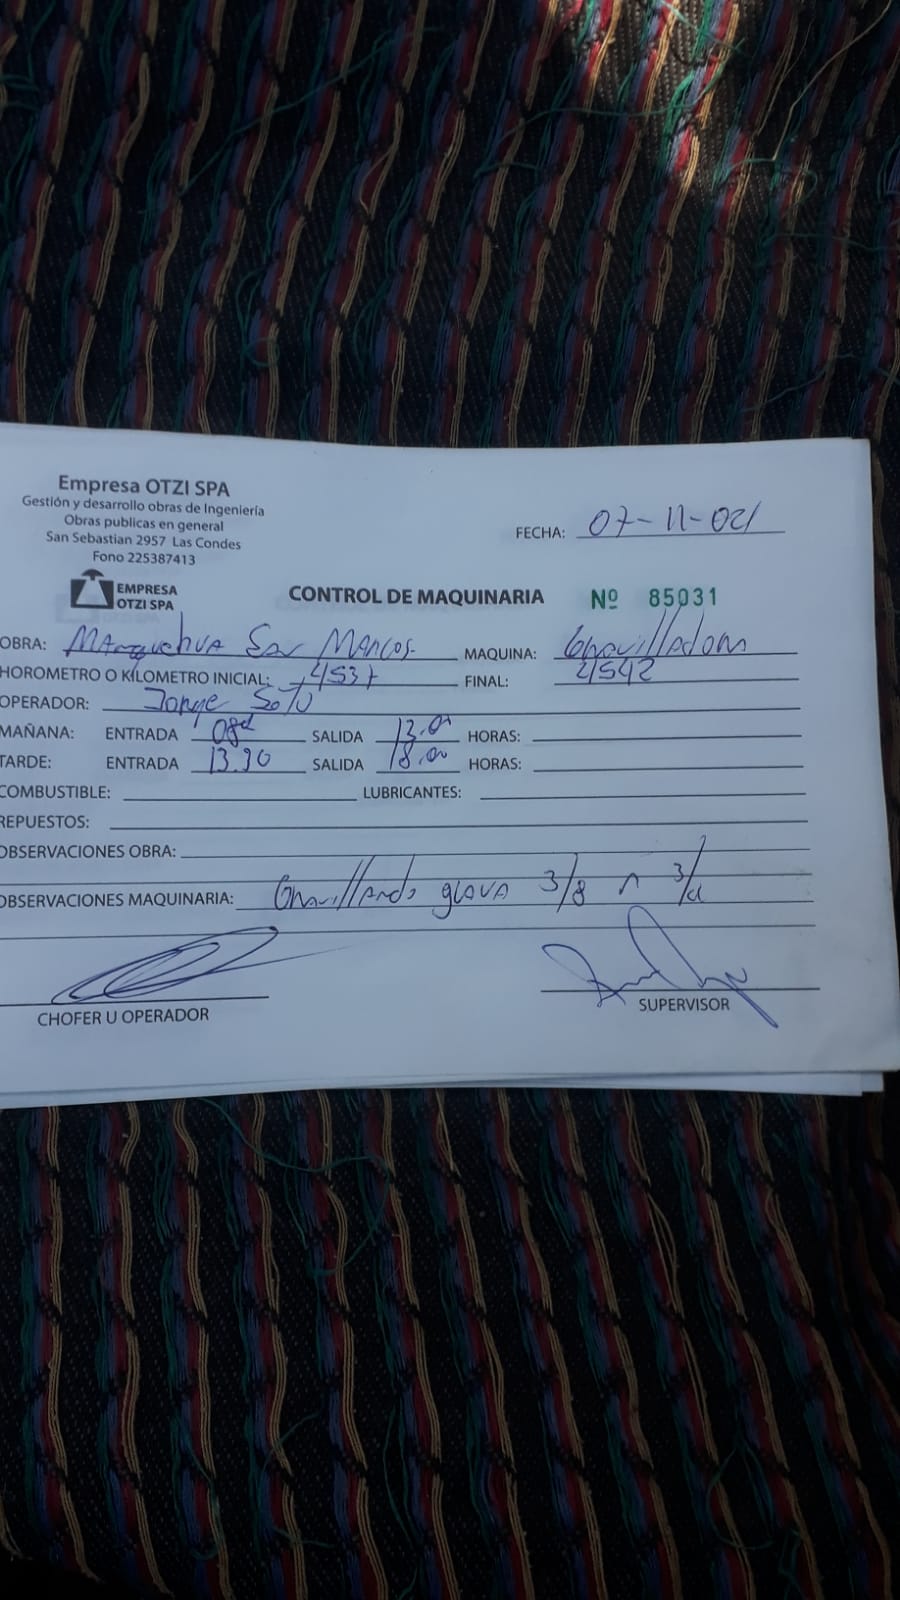 Empresa OTZI SPA
Gestión y desarrollo obras de Ingeniería
Obras publicas en general
San Sebastian 2957 Las Condes
Fono 225387413
FECHA: 07-11-021
EMPRESA
OTZI SPA
CONTROL DE MAQUINARIA Nº 85031
OBRA: San Marcos. MAQUINA: Gravilladora
HOROMETRO O KILOMETRO INICIAL: 4537 FINAL: 4542
OPERADOR: Jorge Soto
MAÑANA: ENTRADA SALIDA 13.00 HORAS:
TARDE: ENTRADA 13.30 SALIDA 18.00 HORAS:
COMBUSTIBLE: LUBRICANTES:
REPUESTOS:
OBSERVACIONES OBRA:
OBSERVACIONES MAQUINARIA: Gravillando grava 3/8 A 3/4
CHOFER U OPERADOR SUPERVISOR